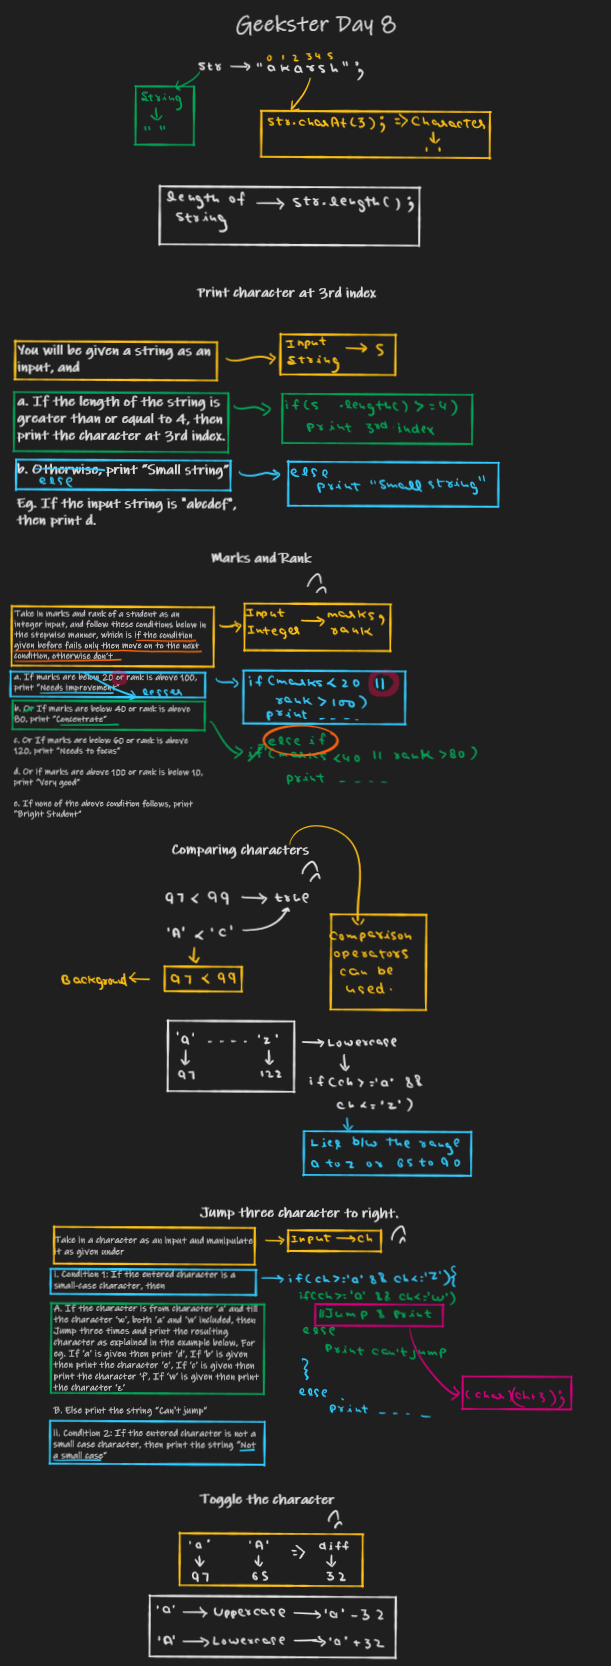 Geekster Day 8
0 1 2 3 4 5
str → "akarsh";
String
↓
" "
str.charAt(3); => Character
↓
' '
length of → str.length();
string
Print character at 3rd index
You will be given a string as an
input, and
Input → s
string
a. If the length of the string is
greater than or equal to 4, then
print the character at 3rd index.
if(s .length() >= 4)
print 3rd index
b. Otherwise, print "Small string"
else
else
print "Small string"
Eg. If the input string is "abcdef",
then print d.
Marks and Rank
Take in marks and rank of a student as an
integer input, and follow these conditions below in
the stepwise manner, which is if the condition
given before fails only then move on to the next
condition, otherwise don't
Input → marks,
Integer rank
a. If marks are below 20 or rank is above 100,
print "Needs improvement"
lesser
if(marks < 20 ||
rank > 100)
print ----
b. Or If marks are below 40 or rank is above
80, print "Concentrate"
else if
if(marks < 40 || rank > 80)
print ----
c. Or If marks are below 60 or rank is above
120, print "Needs to focus"
d. Or if marks are above 100 or rank is below 10,
print "Very good"
e. If none of the above condition follows, print
"Bright Student"
Comparing characters
97 < 99 → true
'A' < 'C'
↓
Background ← 97 < 99
Comparison
operators
can be
used.
'a' ---- 'z' → Lowercase
97 122
if(ch >= 'a' &&
ch <= 'z')
Lies b/w the range
a to z or 65 to 90
Jump three character to right.
Take in a character as an input and manipulate
it as given under
Input → ch
I. Condition 1: If the entered character is a
small-case character, then
→ if(ch >= 'a' && ch <= 'z'){
if(ch >= 'a' && ch <= 'w')
//Jump & Print
else
Print can't jump
}
else
print ----
(char)(ch+3);
A. If the character is from character 'a' and till
the character 'w', both 'a' and 'w' included, then
Jump three times and print the resulting
character as explained in the example below. For
eg. If 'a' is given then print 'd', If 'b' is given
then print the character 'e', If 'c' is given then
print the character 'f', If 'w' is given then print
the character 'z'
B. Else print the string "Can't jump"
II. Condition 2: If the entered character is not a
small case character, then print the string "Not
a small case"
Toggle the character
'a' 'A' => diff
↓ ↓ ↓
97 65 32
'a' → Uppercase → 'a' - 32
'A' → Lowercase → 'a' + 32